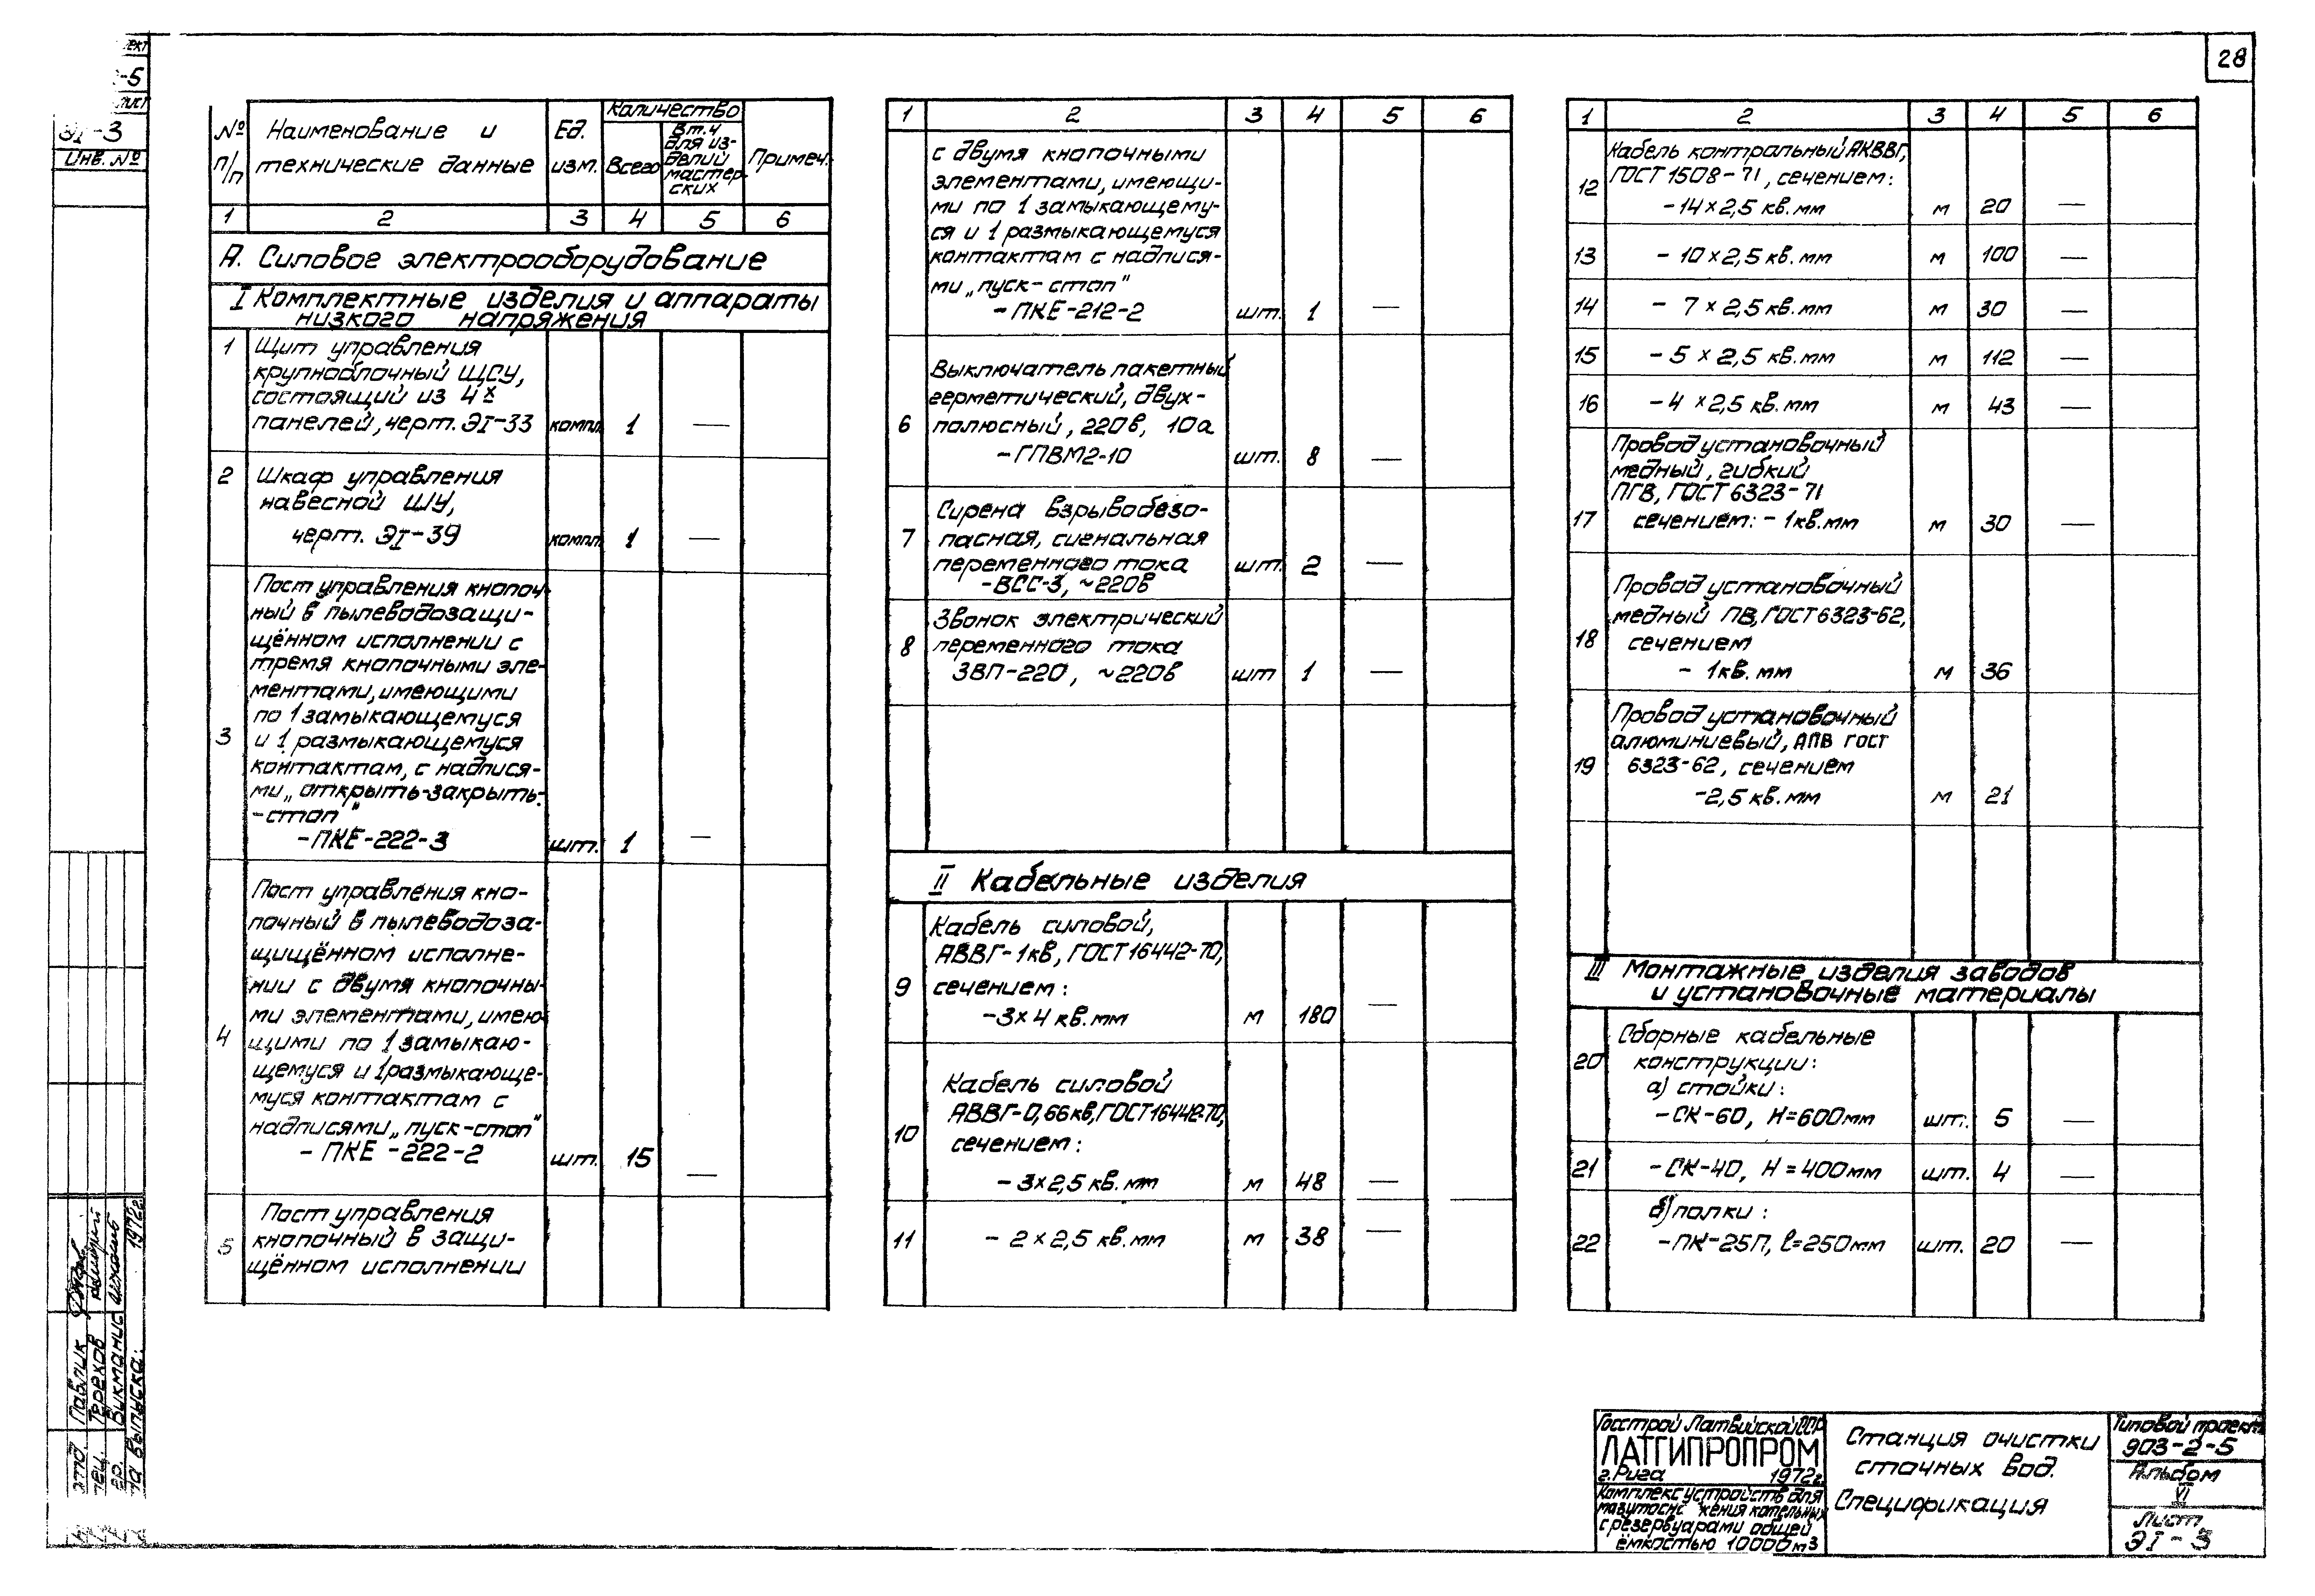 28
-5
ЭI-3
Инв. №
№ п/п
Наименование и технические данные
Ед. изм.
Количество
Всего
В т.ч для изделий мастерских
Примеч.
1 2 3 4 5 6
А. Силовое электрооборудование
I Комплектные изделия и аппараты
низкого напряжения
1 Щит управления
крупноблочный ЩСУ,
состоящий из 4х
панелей, черт. ЭI-33 компл. 1 —
2 Шкаф управления
навесной ШУ,
черт. ЭI-39 компл. 1 —
Пост управления кнопоч-
ный в пылеводозащи-
щённом исполнении с
тремя кнопочными эле-
ментами, имеющими
по 1 замыкающемуся
3 и 1 размыкающемуся
контактам, с надпися-
ми „открыть-закрыть-
-стоп"
-ПКЕ-222-3 шт. 1 —
Пост управления кно-
почный в пылеводоза-
щищённом исполне-
нии с двумя кнопочны-
ми элементами, имею-
4 щими по 1 замыкаю-
щемуся и 1 размыкающе-
муся контактам с
надписями „пуск-стоп"
- ПКЕ -222-2 шт. 15 —
Пост управления
5 кнопочный в защи-
щённом исполнении
1 2 3 4 5 6
с двумя кнопочными
элементами, имеющи-
ми по 1 замыкающему-
ся и 1 размыкающемуся
контактам с надпися-
ми „пуск-стоп"
-ПКЕ-212-2 шт. 1 —
Выключатель пакетный
герметический, двух-
6 полюсный, 220в, 10а
-ГПВМ2-10 шт. 8 —
Сирена взрывобезо-
7 пасная, сигнальная
переменного тока шт. 2 —
-ВСС-3, ~220в
Звонок электрический
8 переменного тока
ЗВП-220, ~220в шт 1 —
II Кабельные изделия
Кабель силовой,
АВВГ-1кв, ГОСТ 16442-70,
9 сечением:
-3×4 кв.мм м 180 —
Кабель силовой
АВВГ-0,66кв, ГОСТ 16442-70,
10 сечением:
- 3×2,5 кв. мм м 48 —
11 - 2×2,5 кв.мм м 38 —
1 2 3 4 5 6
Кабель контрольный АКВВГ,
12 ГОСТ 1508-71, сечением:
-14×2,5 кв.мм м 20 —
13 - 10×2,5 кв.мм м 100 —
14 - 7×2,5 кв.мм м 30 —
15 - 5 × 2,5 кв.мм м 112 —
16 -4 ×2,5 кв.мм м 43 —
Провод установочный
медный, гибкий
ПГВ, ГОСТ 6323-71
17 сечением: - 1кв.мм м 30 —
Провод установочный
медный ПВ, ГОСТ 6323-62,
18 сечением
- 1кв. мм м 36
Провод установочный
алюминиевый, АПВ ГОСТ
19 6323-62, сечением
-2,5 кв.мм м 21
III Монтажные изделия заводов
и установочные материалы
Сборные кабельные
20 конструкции:
а) стойки:
-СК-60, Н=600мм шт. 5 —
21 -СК-40, Н=400мм шт. 4 —
б) полки:
22 -ПК-25П, ℓ=250мм шт. 20 —
Павлик
Терехов
Выкманис
та выпуска: 1972г.
Госстрой Латвийской ССР
ЛАТГИПРОПРОМ
г. Рига 1972г.
Комплекс устройств для
мазутоснабжения котельных
с резервуарами общей
ёмкостью 10000м3
Станция очистки
сточных вод.
Спецификация
Типовой проект
903-2-5
Альбом
VI
Лист
ЭI-3